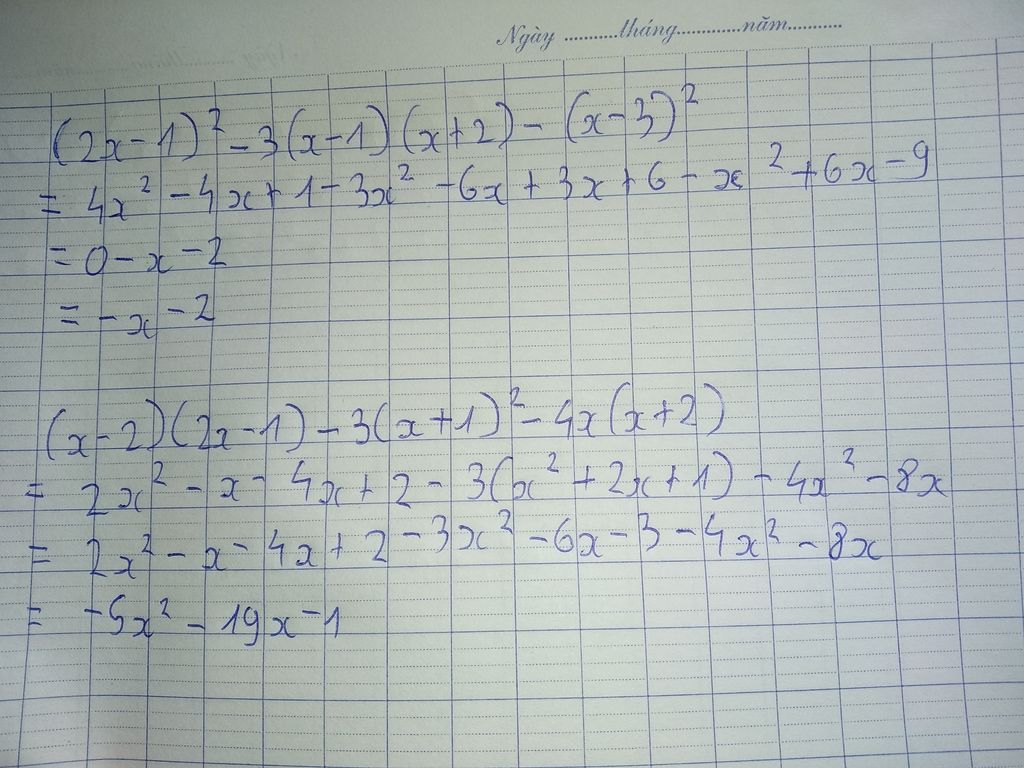 Ngày ...........tháng.............năm...........
(2x-1)² - 3(x-1)(x+2) - (x-3)²
= 4x² - 4x + 1 - 3x² - 6x + 3x + 6 - x² + 6x - 9
= 0 - x - 2
= - x - 2
(x-2)(2x-1) - 3(x+1)² - 4x(x+2)
= 2x² - x - 4x + 2 - 3(x² + 2x + 1) - 4x² - 8x
= 2x² - x - 4x + 2 - 3x² - 6x - 3 - 4x² - 8x
= -5x² - 19x - 1